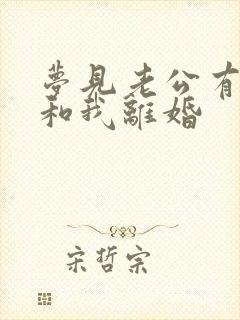 夢見老公有
和我離婚
宋哲宗